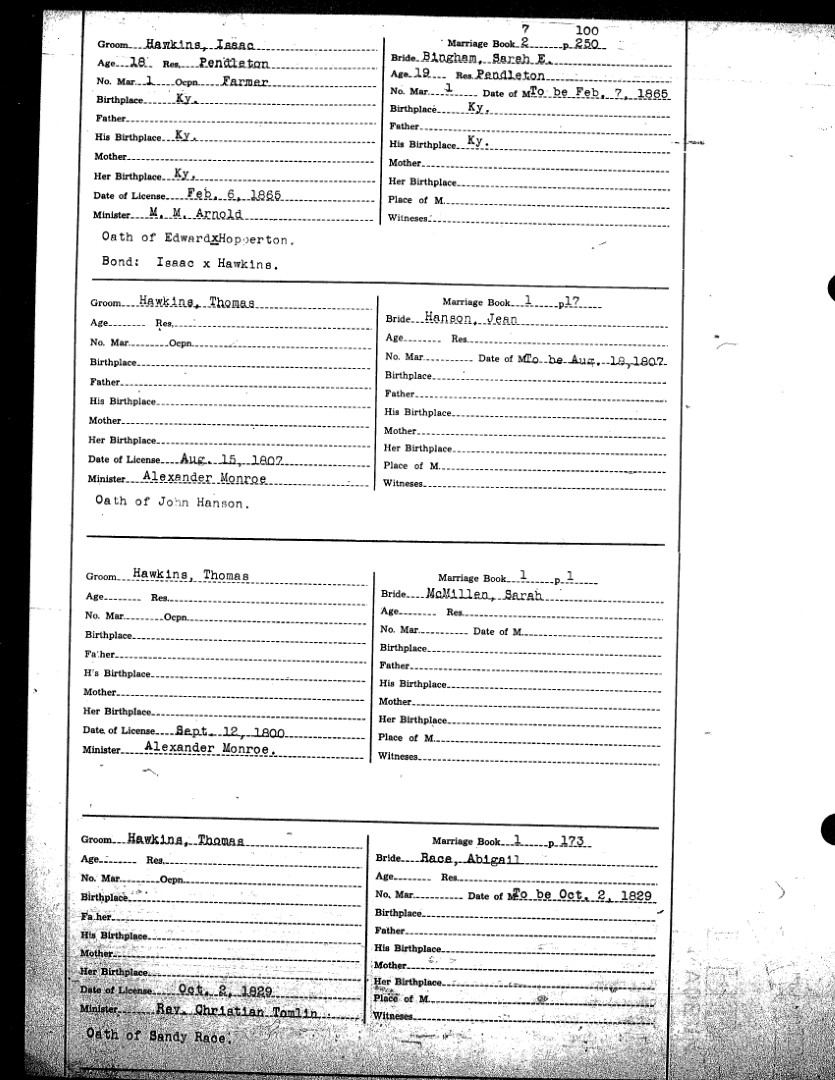 7 100
Groom Hawkins, Isaac
Age 18 Res. Pendleton
No. Mar. 1 Ocpn. Farmer
Birthplace Ky.
Father
His Birthplace Ky.
Mother
Her Birthplace Ky.
Date of License Feb. 6, 1865
Minister M. M. Arnold
Marriage Book 2 p. 250
Bride Bingham, Sarah E.
Age 19 Res. Pendleton
No. Mar. 1 Date of M. To be Feb. 7, 1865
Birthplace Ky.
Father
His Birthplace Ky.
Mother
Her Birthplace
Place of M.
Witneses
Oath of EdwardxHopperton.
Bond: Isaac x Hawkins.
Groom Hawkins, Thomas
Age Res.
No. Mar. Ocpn.
Birthplace
Father
His Birthplace
Mother
Her Birthplace
Date of License Aug. 15, 1807
Minister Alexander Monroe
Marriage Book 1 p17
Bride Hanson, Jean
Age Res.
No. Mar. Date of M. To be Aug. 18,1807
Birthplace
Father
His Birthplace
Mother
Her Birthplace
Place of M.
Witneses
Oath of John Hanson.
Groom Hawkins, Thomas
Age Res.
No. Mar. Ocpn.
Birthplace
Father
H's Birthplace
Mother
Her Birthplace
Date of License Sept. 12, 1800
Minister Alexander Monroe.
Marriage Book 1 p 1
Bride McMillen, Sarah
Age Res.
No. Mar. Date of M.
Birthplace
Father
His Birthplace
Mother
Her Birthplace
Place of M.
Witneses
Groom Hawkins, Thomas
Age Res.
No. Mar. Ocpn.
Birthplace
Father
His Birthplace
Mother
Her Birthplace
Date of License Oct. 2, 1829
Minister Rev. Christian Tomlin
Marriage Book 1 p. 173
Bride Race, Abigail
Age Res.
No. Mar. Date of M. To be Oct. 2, 1829
Birthplace
Father
His Birthplace
Mother
Her Birthplace
Place of M.
Witneses
Oath of Sandy Race.